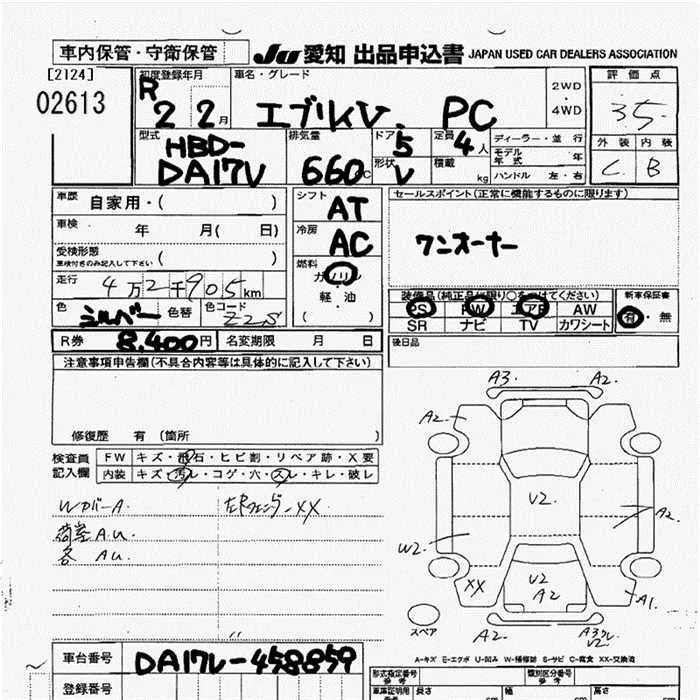 車内保管・守衛保管 JU 愛知 出品申込書 JAPAN USED CAR DEALERS ASSOCIATION
[2124]
02613
初度登録年月 車名・グレード 2WD ・ 4WD 評価点
R 2 2月 エブリィV. PC 3.5
型式 排気量 ドア 定員 ディーラー・並行 外装 内装
HBD-DA17V 660cc 5 4人 モデル年式 年 C B
形状 V 積載 kg ハンドル 左・右
車歴 自家用・( ) シフト AT セールスポイント(正常に機能するものに限ります)
車検 年 月( 日) 冷房 AC ワンオーナー
受検形態 ( )
車検付きのみ記入して下さい
燃料 ガソリン
軽・油
( )
走行 4万2千905km
色 シルバー 色替 色コード Z2S
装備品(純正品に限り○をつけてください) 新車保証書
PS PW エアB AW 有・無
SR ナビ TV カワシート
R券 8,400円 名変期限 月 日 後日品
注意事項申告欄(不具合内容等は具体的に記入して下さい)
修復歴 有 (箇所 )
検査員記入欄 FW キズ・飛石・ヒビ割・リペア跡・X要
内装 キズ・汚レ・コゲ・穴・スレ・キレ・破レ
WカバーA. 左Rフェンダー XX
荷室A.U.
各 AU.
A3. A2.
A2.
V2.
A2.
W2.
XX V2 A2 A1.
スペア A2. A3
A-キズ E-エクボ U-凹み W-補修跡 S-サビ C-腐食 XX-交換済
車台番号 DA17V-458859
登録番号
形式指定番号 参考 類別区分番号 参考
長さ cm 幅 cm 高さ cm